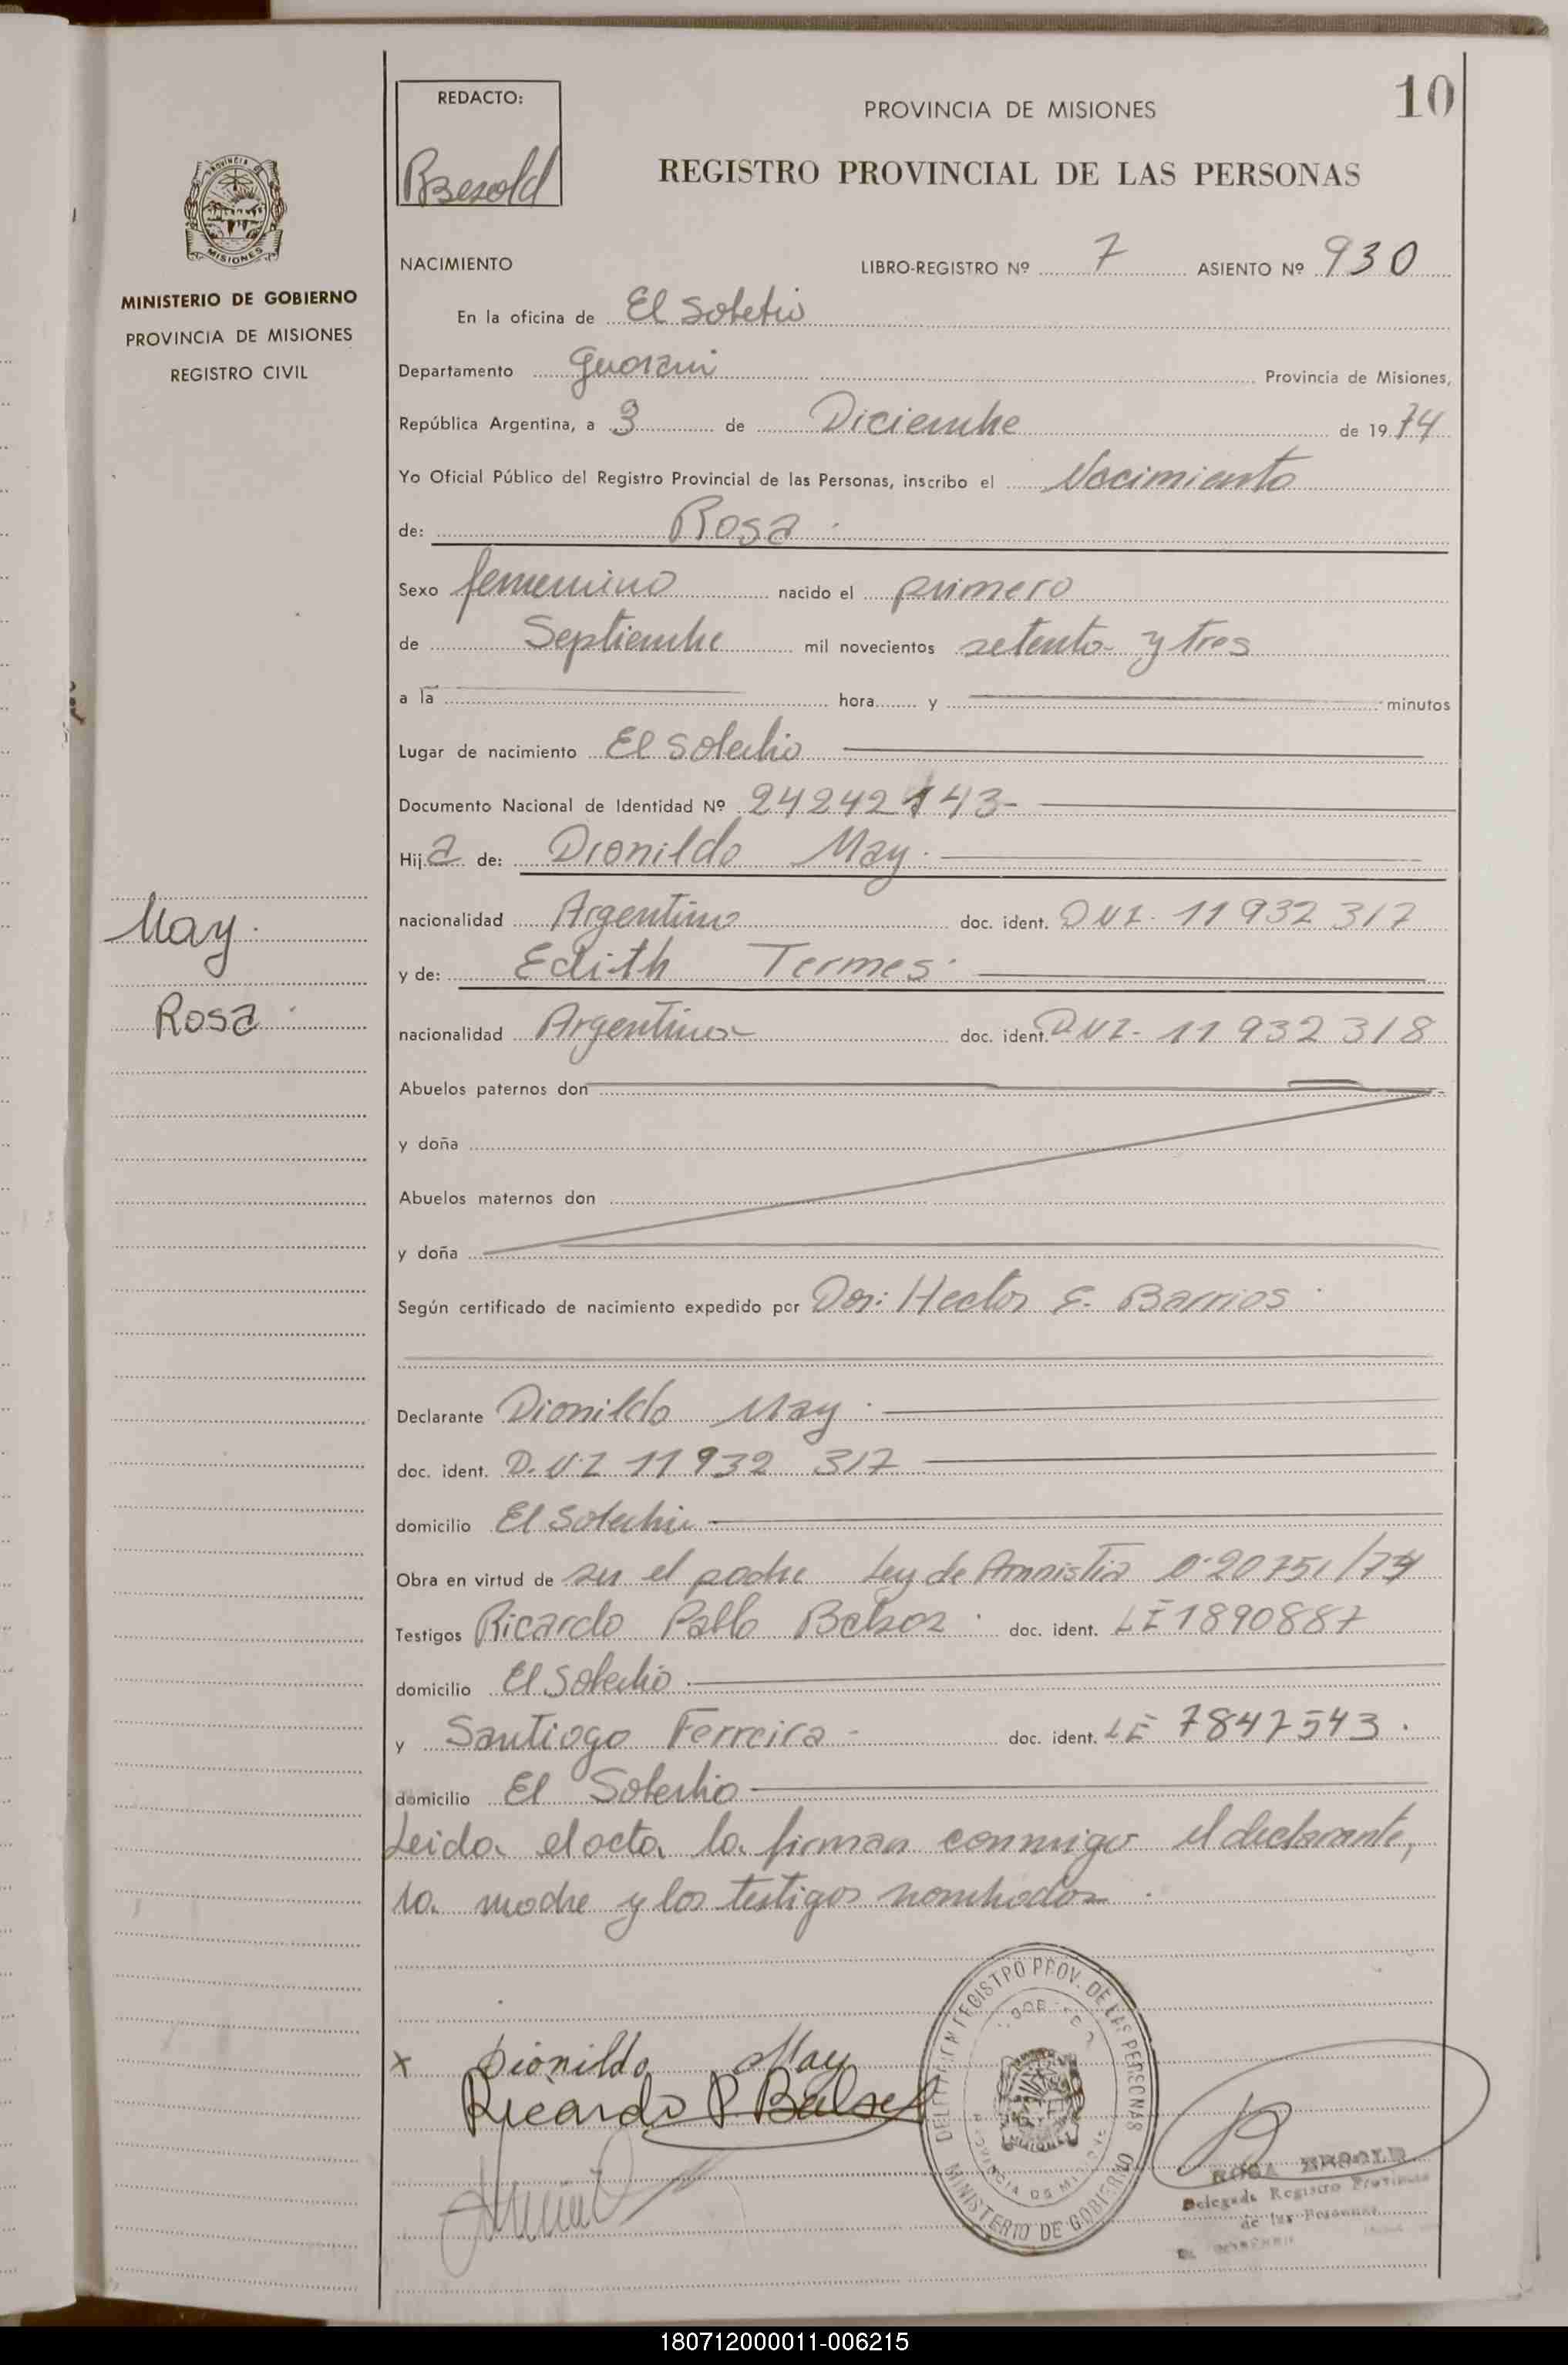 10
REDACTO:
PROVINCIA DE MISIONES
REGISTRO PROVINCIAL DE LAS PERSONAS
PROVINCIA
MISIONES
MINISTERIO DE GOBIERNO
PROVINCIA DE MISIONES
REGISTRO CIVIL
NACIMIENTO LIBRO-REGISTRO Nº 7 ASIENTO Nº 930
En la oficina de El Soberbio
Departamento Guarani Provincia de Misiones,
República Argentina, a 3 de Diciembre de 1974
Yo Oficial Público del Registro Provincial de las Personas, inscribo el Nacimiento
de: Rosa
Sexo femenino nacido el primero
de Septiembre mil novecientos setenta y tres
a la hora y minutos
Lugar de nacimiento El Soberbio
Documento Nacional de Identidad Nº 24242143
Hija de: Dionildo May
nacionalidad Argentino doc. ident. DNI 11 932 317
y de: Edith Termes
nacionalidad Argentina doc. ident. DNI 11 932 318
May
Rosa
Abuelos paternos don
y doña
Abuelos maternos don
y doña
Según certificado de nacimiento expedido por Dor: Hector E. Barrios
Declarante Dionildo May
doc. ident. D.N.I 11 932 317
domicilio El Soberbio
Obra en virtud de ser el padre Ley de Amnistia 20751/74
Testigos Ricardo Pablo doc. ident. LE 1890887
domicilio El Soberbio
y Santiago Ferreira doc. ident. LE 7847543
domicilio El Soberbio
Leida el acta la firman conmigo el declarante,
la madre y los testigos nombrados
x Dionildo May
Ricardo P
REGISTRO PROV. DE LAS PERSONAS
PROVINCIA DE MISIONES
MINISTERIO DE GOBIERNO
ROSA
Delegada Registro Provincial
de las Personas
180712000011-006215